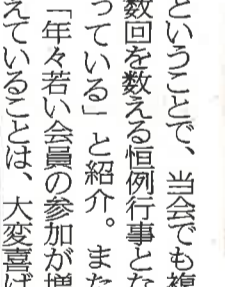 ということで、当会でも複
数回を数える恒例行事とな
っている」と紹介。また
「年々若い会員の参加が増
えていることは、大変喜ば